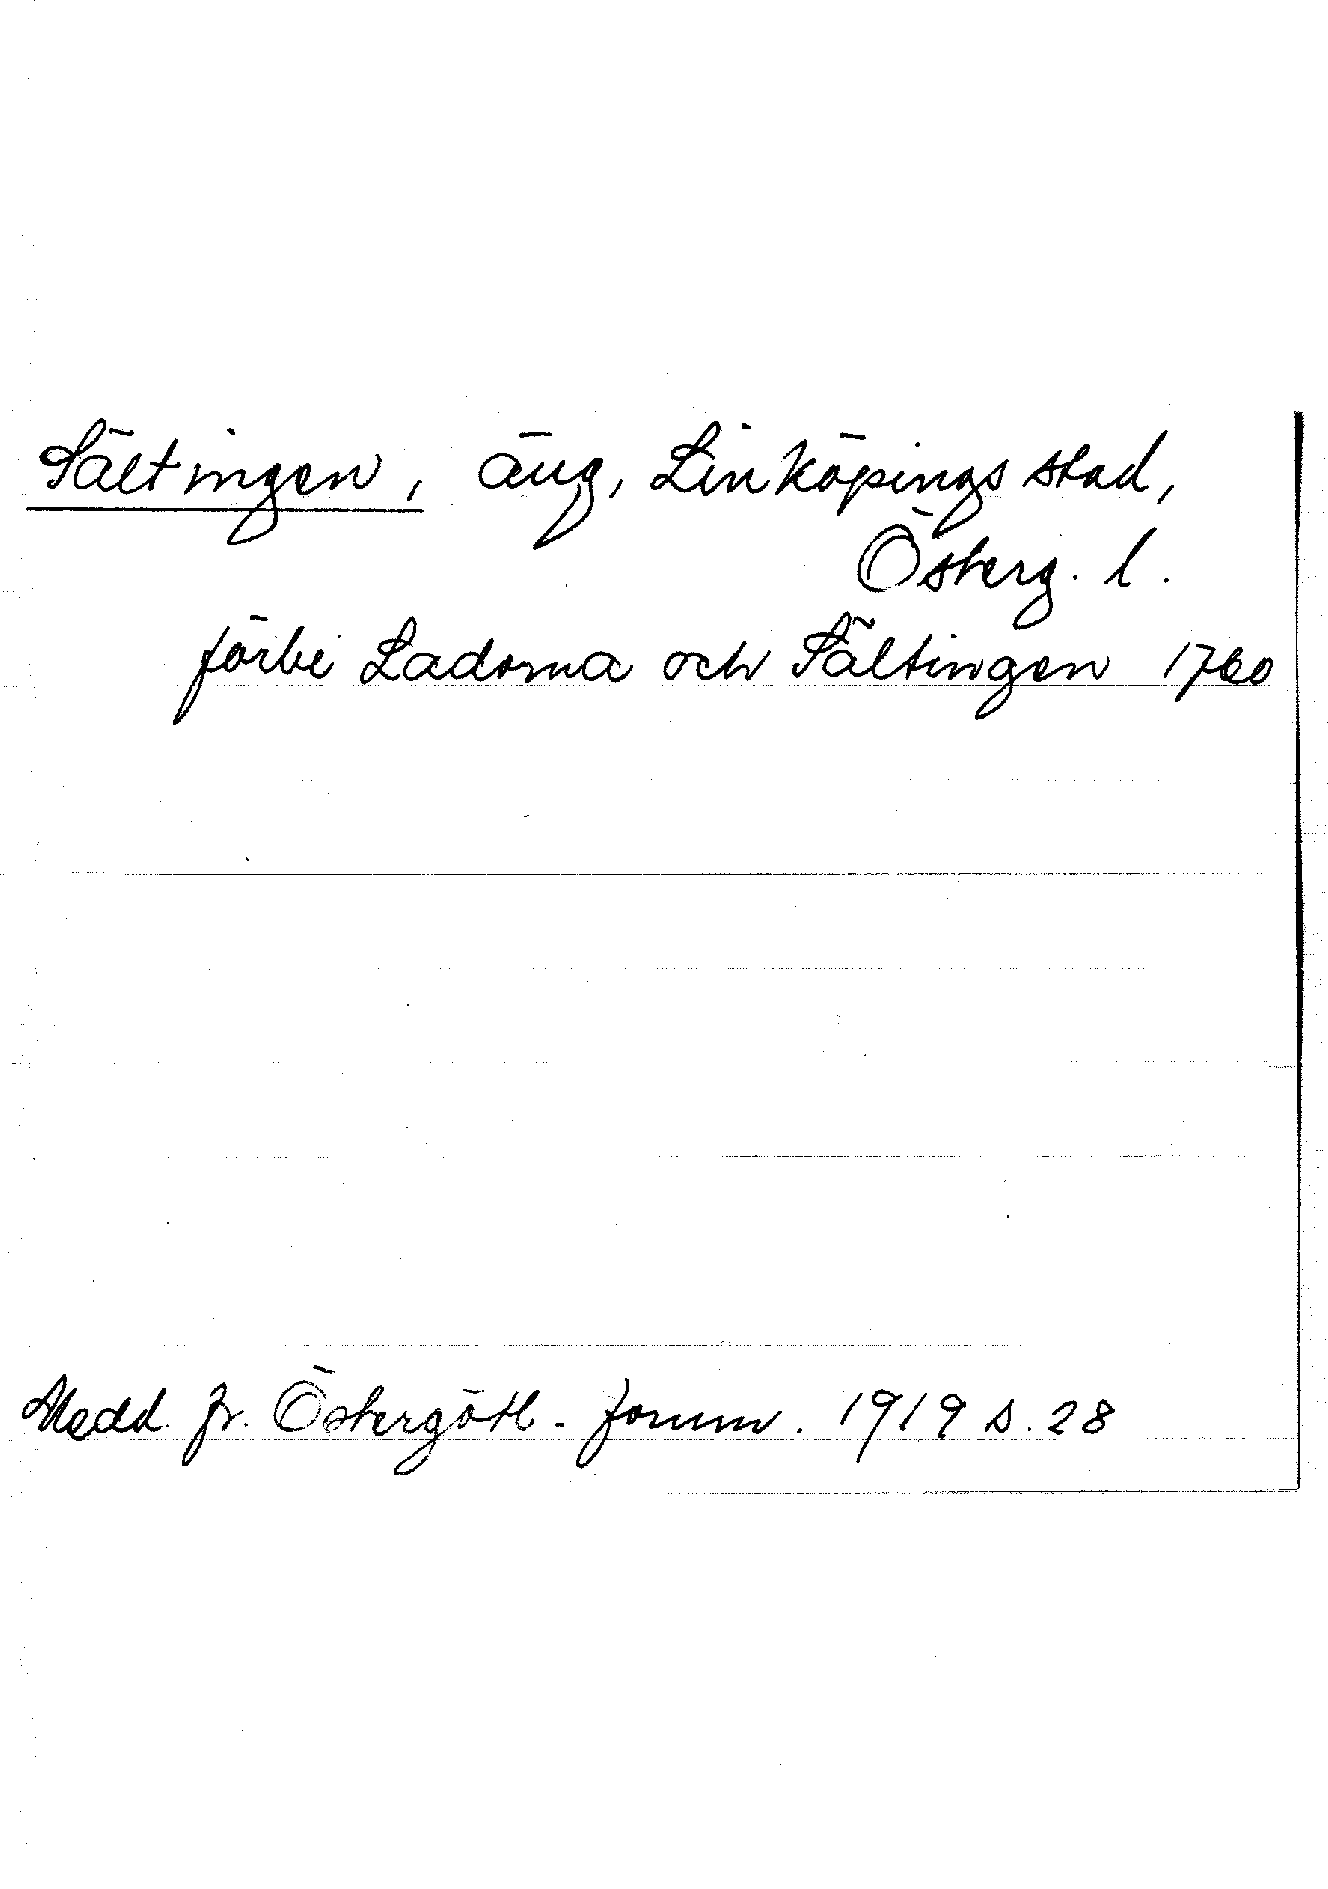 Sältingen, äng, Linköpings stad,
Österg. l.
förbi Ladorna och Sältingen 1760
Medd. fr. Östergötl. fornm. 1919 s. 28